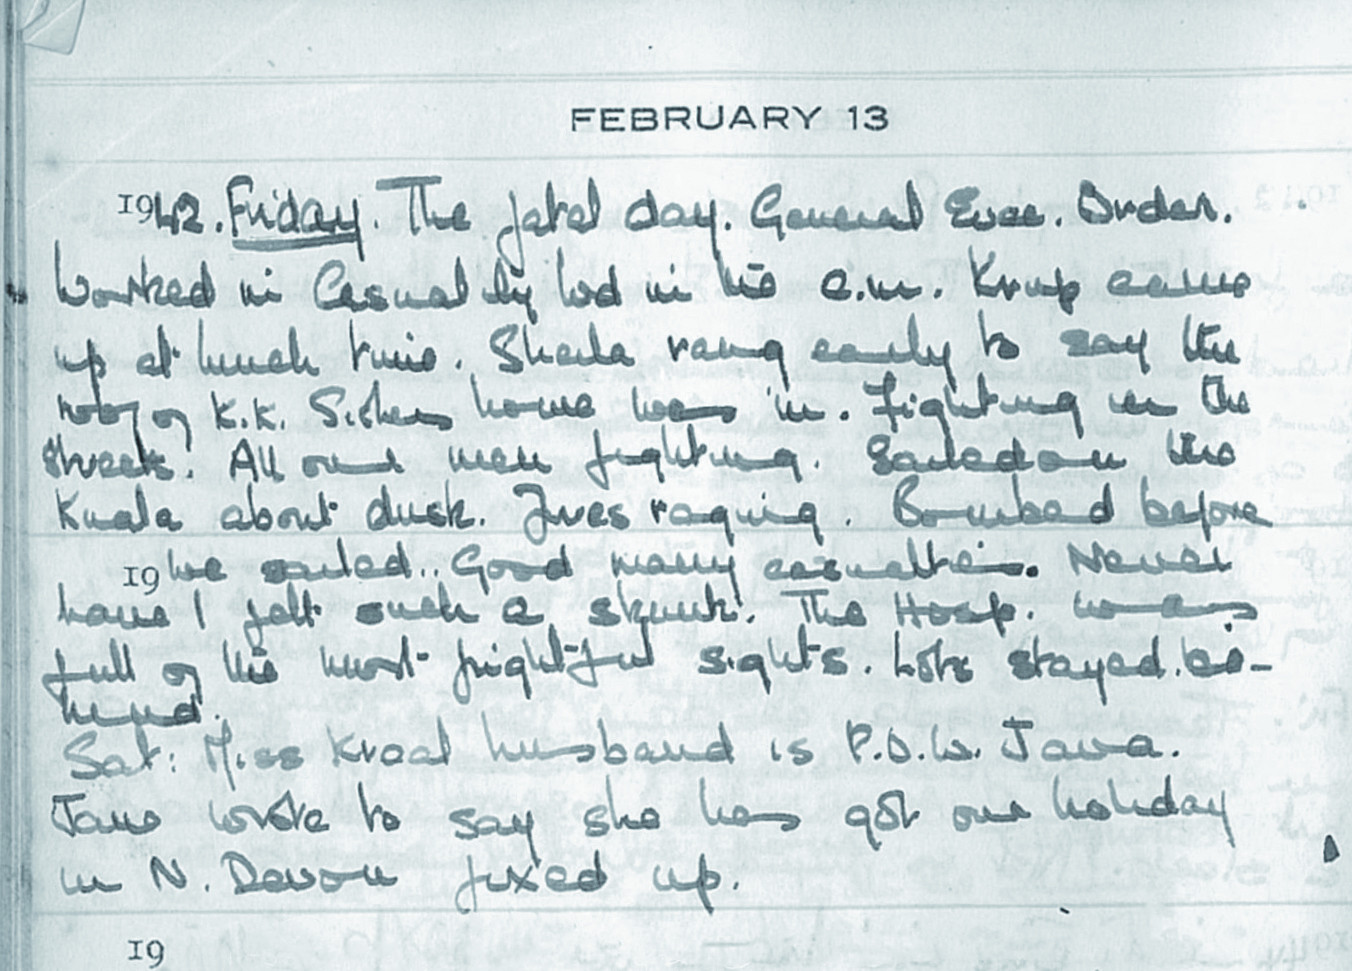 FEBRUARY 13
1942. Friday. The fatal day. General Evac. Order.
Worked in Casualty wd in the a.m. Krup came
up at lunch time. Sheila rang early to say the
roof of K.K. Sisters home was in. Fighting in the
streets. All our men fighting. Sailed on the
Kuala about dusk. Fires raging. Bombed before
19 we sailed. Good many casualties. Never
have I felt such a skunk. The Hosp. was
full of the most frightful sights. Lots stayed be-
hind.
Sat: Miss Kraal husband is P.O.W. Java.
Jane wrote to say she has got our holiday
in N. Devon fixed up.
19